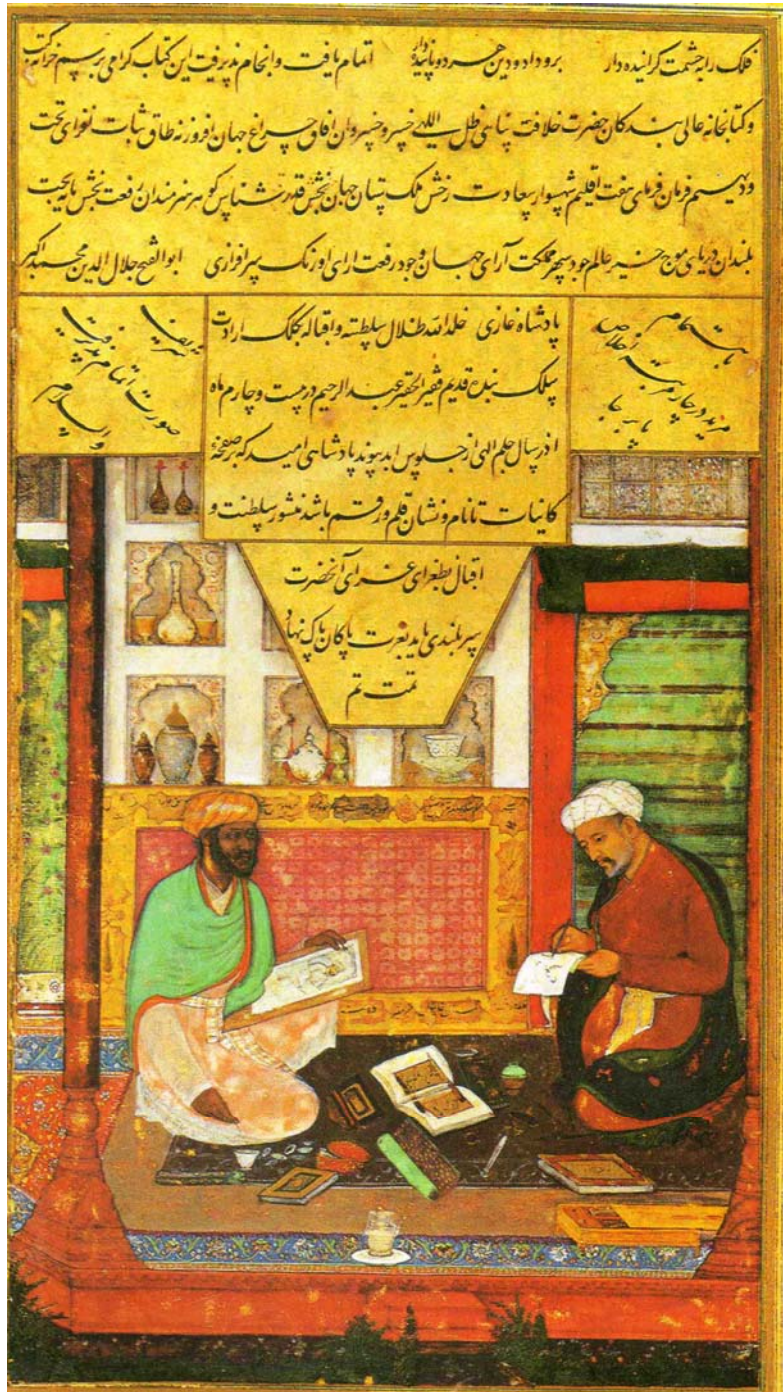 فلک را بچشمت گراینده دار برو داد و دین هر دو پاینده دار اتمام یافت و انجام پذیرفت این کتاب گرامی برسم خزانه کتب
و کتابخانه عالی بندکان حضرت خلافت پناهی ظل اللهی خسرو خسروان افاق چراغ جهان افروز نه طاق ثبات تخت
و دیهیم فرمان فرمای هفت اقلیم شهسوار سعادت رخش ملک ستان جهان بخش قدر شناس کوهر هنرمندان رفعت بخش پایه بخت
بلندان دریای موج خیز عالم جود سپهر مملکت آرای جهان وجود رفعت ارای اورنک سرافرازی ابوالفتح جلال الدین محمد اکبر
پادشاه غازی خلد الله ظلال سلطنته و اقباله بکلک ارادت
سلک بنده قدیم فقیر الحقیر عبد الرحیم در بیست و چارم ماه
اذر سال چلم الهی از جلوس ابد پیوند پادشاهی امید که بر صفحهٔ
کاینات تا نام و نشان قلم و رقم باشد منشور سلطنت و
اقبال بطغرای غرای آنحضرت
سربلندی یابد بعزت پاکان پاک نهاد
تمت تم
صورت اتمام پذیرفت
والسلام